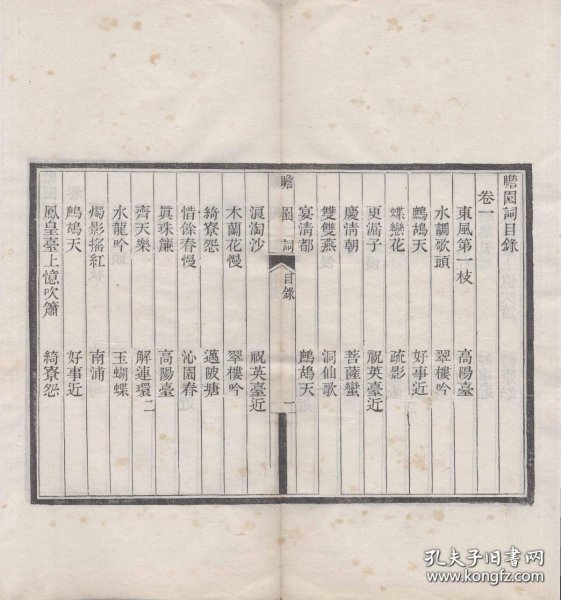 瞻園詞目錄
卷一
東風第一枝 高陽臺
水調歌頭 翠樓吟
鷓鴣天 好事近
蝶戀花 疏影
更漏子 祝英臺近
慶清朝 菩薩蠻
雙雙燕 洞仙歌
宴清都 鷓鴣天
瞻園詞 目錄 一
浪淘沙 祝英臺近
木蘭花慢 翠樓吟
綺寮怨 邁陂塘
惜餘春慢 沁園春
眞珠簾 高陽臺
齊天樂 解連環二
水龍吟 玉蝴蝶
燭影搖紅 南浦
鷓鴣天 好事近
鳳皇臺上憶吹簫 綺寮怨
孔夫子旧书网
www.kongfz.com